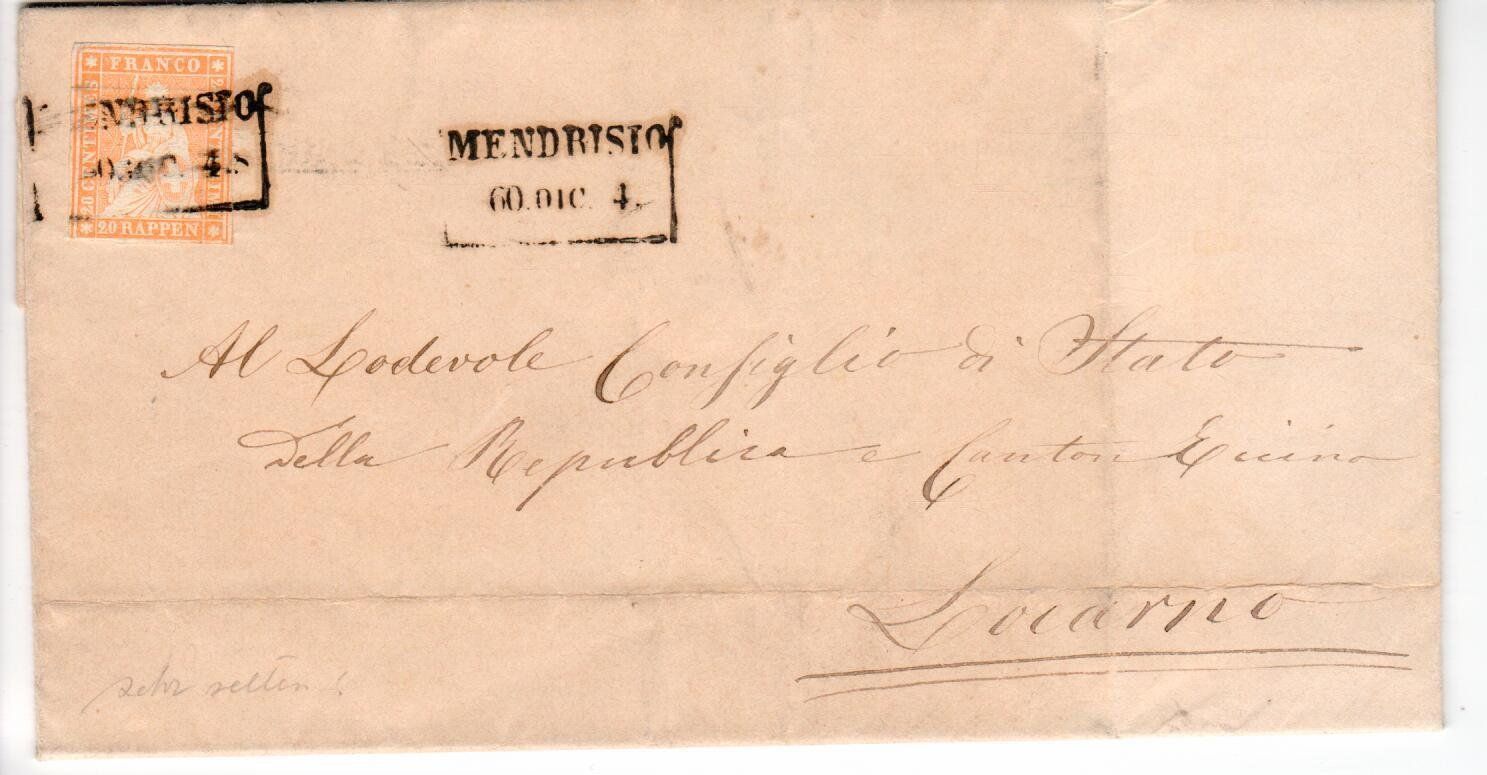 FRANCO
20 CENTIMES
20 RAPPEN
NDRISIO
MENDRISIO
60.DIC. 4.
Al Lodevole Consiglio di Stato
della Repubblica e Canton Ticino
Locarno
sehr selten!